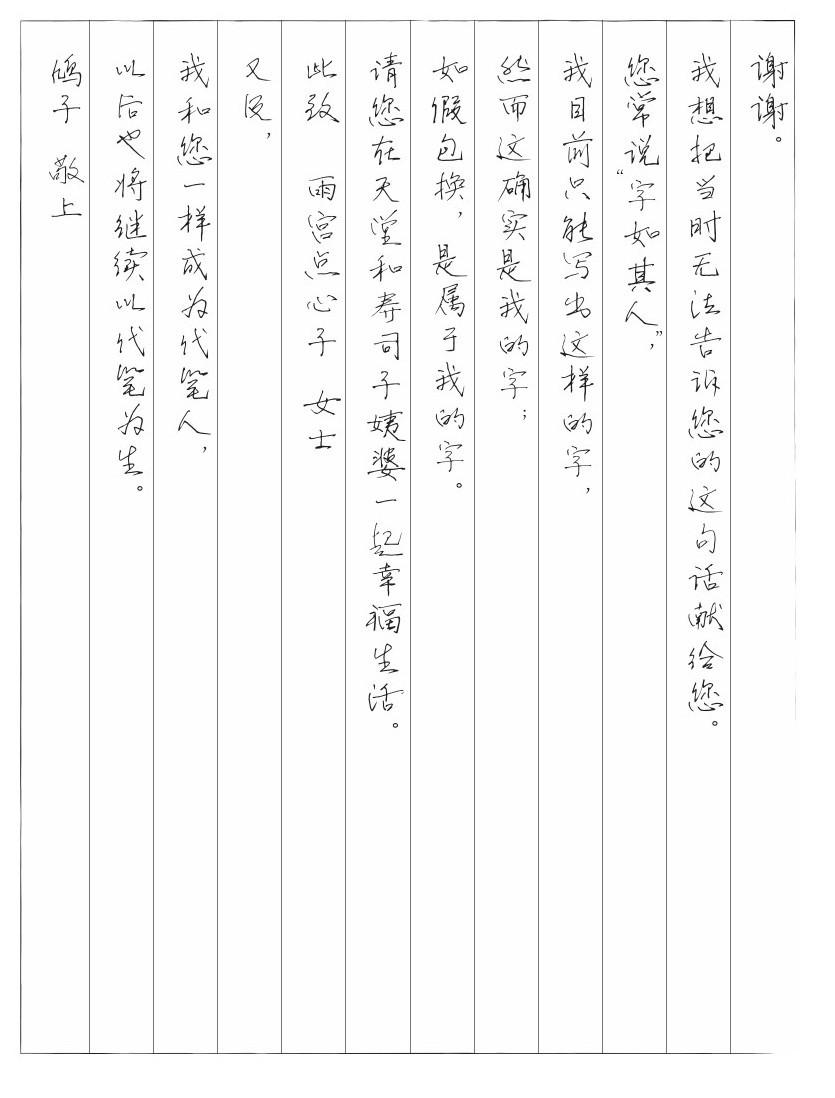 谢谢。
我想把当时无法告诉您的这句话献给您。
您常说“字如其人，”
我目前只能写出这样的字，
然而这确实是我的字；
如假包换，是属于我的字。
请您在天堂和寿司子姨婆一起幸福生活。
此致 雨宫点心子 女士
又及，
我和您一样成为代笔人，
以后也将继续以代笔为生。
鸠子 敬上